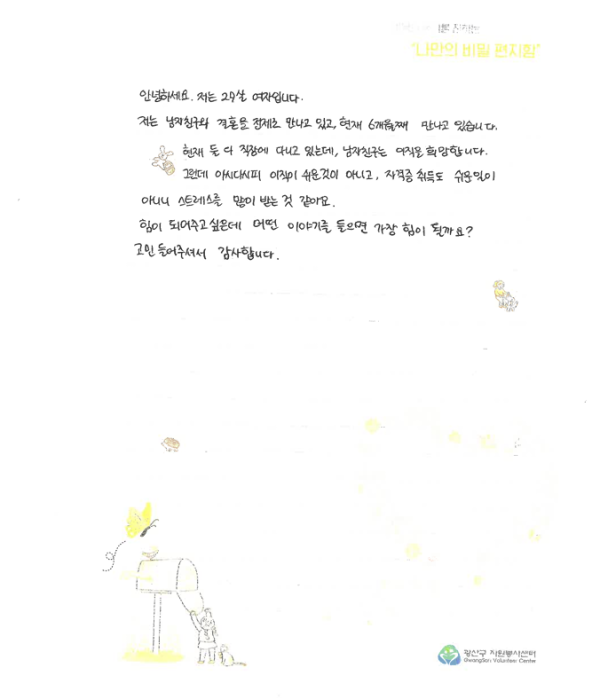 "나만의 비밀 편지함"
안녕하세요. 저는 29살 여자입니다.
저는 남자친구와 결혼을 전제로 만나고 있고, 현재 6개월째 만나고 있습니다.
현재 둘 다 직장에 다니고 있는데, 남자친구는 이직을 희망합니다.
그런데 아시다시피 이직이 쉬운것이 아니고, 자격증 취득도 쉬운일이
아니니 스트레스를 많이 받는 것 같아요.
힘이 되어주고싶은데 어떤 이야기를 들으면 가장 힘이 될까요?
고민 들어주셔서 감사합니다.
광산구 자원봉사센터
GwangSan Volunteer Center